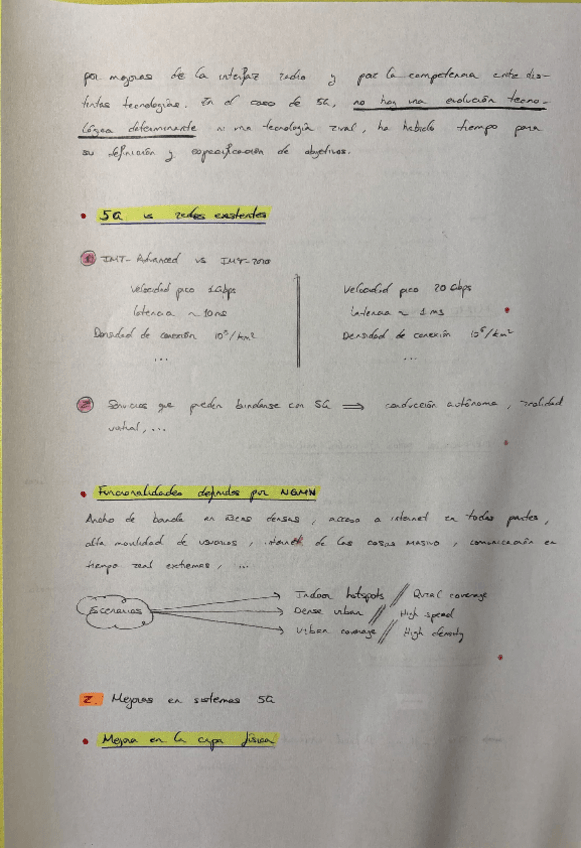 por mejoras de la interfaz radio y por la competencia entre dis-
tintas tecnologías. En el caso de 5G, no hay una evolución tecno-
lógica determinante ni una tecnología rival, ha habido tiempo para
su definición y especificación de objetivos.
• 5G vs redes existentes
1 IMT-Advanced vs IMT-2020
Velocidad pico 1Gbps
Latencia ~ 10ms
Densidad de conexión 10⁵/km²
...
Velocidad pico 20 Gbps
Latencia ~ 1 ms
Densidad de conexión 10⁶/km²
...
2 Servicios que pueden brindarse con 5G ⟹ conducción autónoma, realidad
virtual, ...
• Funcionalidades definidas por NGMN
Ancho de banda en áreas densas, acceso a internet en todas partes,
alta movilidad de usuarios, internet de las cosas masivo, comunicación en
tiempo real extremas, ...
Escenarios
Indoor hotspots // Rural coverage
Dense urban // High speed
Urban coverage // High density
2. Mejoras en sistemas 5G
• Mejora en la capa física